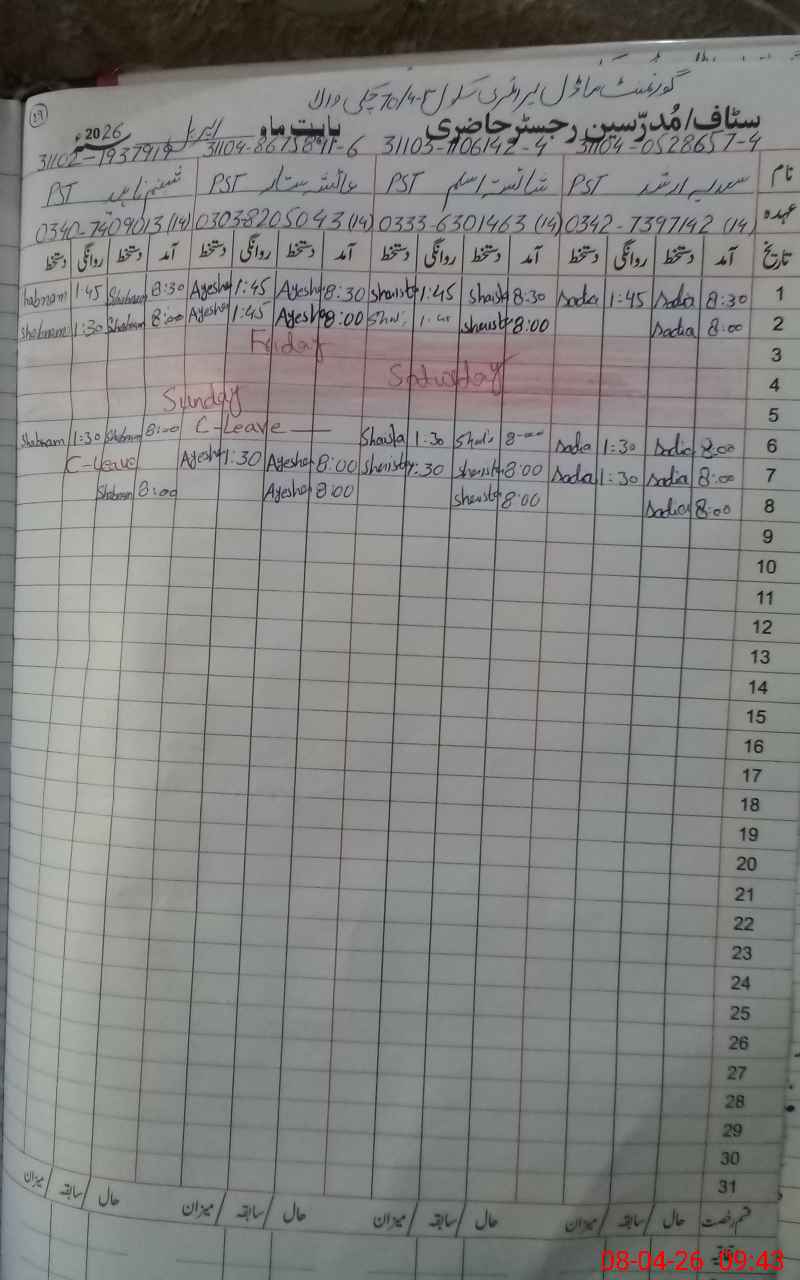 19
گورنمنٹ ماڈل پرائمری سکول 70/4-R چکی والا
سٹاف/مُدرّسین رجسٹر حاضری بابت ماہ اپریل 2026ء
31104-0528657-4 31103-1106142-4 31102-1937919
نام سعدیہ ارشد PST شائستہ اسلم PST عائشہ ستار PST شبنم PST
عہدہ 0342-7397142 (14) 0333-6301463 (14) 03038205043 (14) 0340-7409013 (14)
تاریخ آمد دستخط روانگی دستخط آمد دستخط روانگی دستخط آمد دستخط روانگی دستخط آمد دستخط روانگی دستخط
1 8:30 Sadia 1:45 Sadia 8:30 Shaista 1:45 Shaista 8:30 Ayesha 1:45 Ayesha 8:30 Shabnam 1:45 habnam
2 8:00 Sadia 8:00 Shaista 8:00 Ayesha 1:45 Ayesha 8:00 Shabnam 1:30 Shabnam
3 Friday
4 Saturday
5 Sunday
6 8:00 Sadia 1:30 Sadia 8:00 Shaista 1:30 Shaista C-Leave 8:00 Shabnam 1:30 Shabnam
7 8:00 Sadia 1:30 Sadia 8:00 Shaista 1:30 Shaista 8:00 Ayesha 1:30 Ayesha C-Leave
8 8:00 Sadia 8:00 Shaista 8:00 Ayesha 8:00 Shabnam
9
10
11
12
13
14
15
16
17
18
19
20
21
22
23
24
25
26
27
28
29
30
31
قسم رخصت حال / سابقہ / میزان حال / سابقہ / میزان حال / سابقہ / میزان حال / سابقہ / میزان
08-04-26 09:43